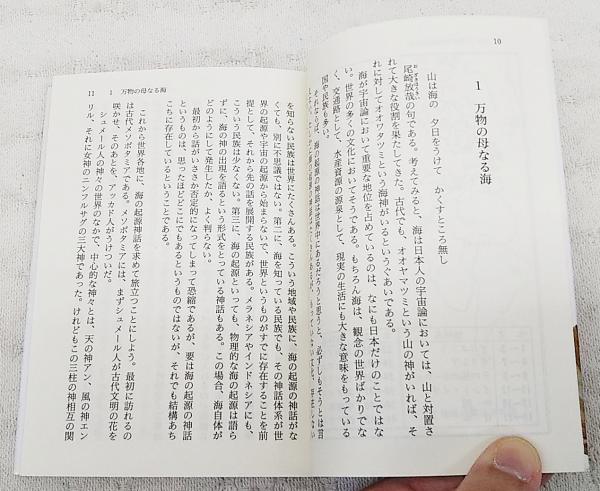 10
1 万物の母なる海
山は海の 夕日をうけて かくすところ無し
尾崎放哉の句である。考えてみると、海は日本人の宇宙論においては、山と対置さ
れて大きな役割を果たしてきた。古代でも、オオヤマツミという山の神がいれば、そ
れに対してオオワタツミという海神がいるというぐあいである。
海が宇宙論において重要な地位を占めているのは、なにも日本だけのことではな
い。世界の多くの文化においてそうである。もちろん海は、観念の世界ばかりでな
く、交通路として、水産資源の源泉として、現実の生活にも大きな意味をもっている
国や民族も多い。
それならば、海の起源の神話は世界中にあるだろうと思うと、必ずしもそうとは言
11 1 万物の母なる海
を知らない民族は世界にたくさんある。こういう地域や民族に、海の起源の神話がな
くても、別に不思議ではない。第二に、海を知っている民族でも、その神話体系が世
界の起源や宇宙の起源から始まらないで、世界というものがすでに存在することを前
提として、それから先の話を展開する民族がある。メラネシアやインドネシアにも、
こういう民族は少なくない。第三に、海の起源といっても、物理的な海の起源は語ら
ず、海の神の出現を語るという形式をとっている神話もある。この場合、海自体が
どのようにして発生したか、よく判らない。
最初から話がいささか否定的になってしまって恐縮であるが、要は海の起源の神話
というものは、思ったほどどこにでもあるというものではないが、それでも結構あち
こちに存在しているということである。
これから世界各地に、海の起源神話を求めて旅立つことにしよう。最初に訪れるの
は古代メソポタミアである。メソポタミアには、まずシュメール人が古代文明の花を
咲かせ、そのあとを、アッカド人がうけついだ。
シュメール人の神々の世界のなかで、中心的な神々は、天の神アン、風の神エン
リル、それに女神のニンフルサグの三大神であった。けれどもこの三柱の神相互の関